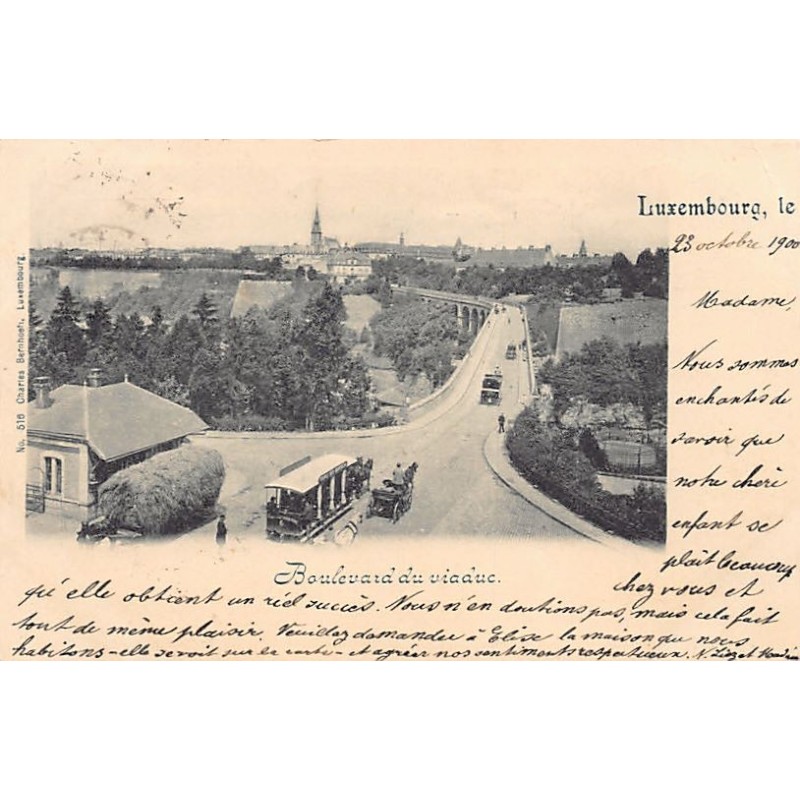 Luxembourg, le
23 octobre 1900
Madame,
Nous sommes
enchantés de
savoir que
notre chère
enfant se
plaît beaucoup
chez vous et
qu'elle obtient un réel succès. Nous n'en doutions pas, mais cela fait
tout de même plaisir. Veuillez demander à Elise la maison que nous
habitons - elle se voit sur la carte - et agréer nos sentiments respectueux. N.
Boulevard du viaduc.
No. 516 Charles Bernhoeft, Luxembourg.